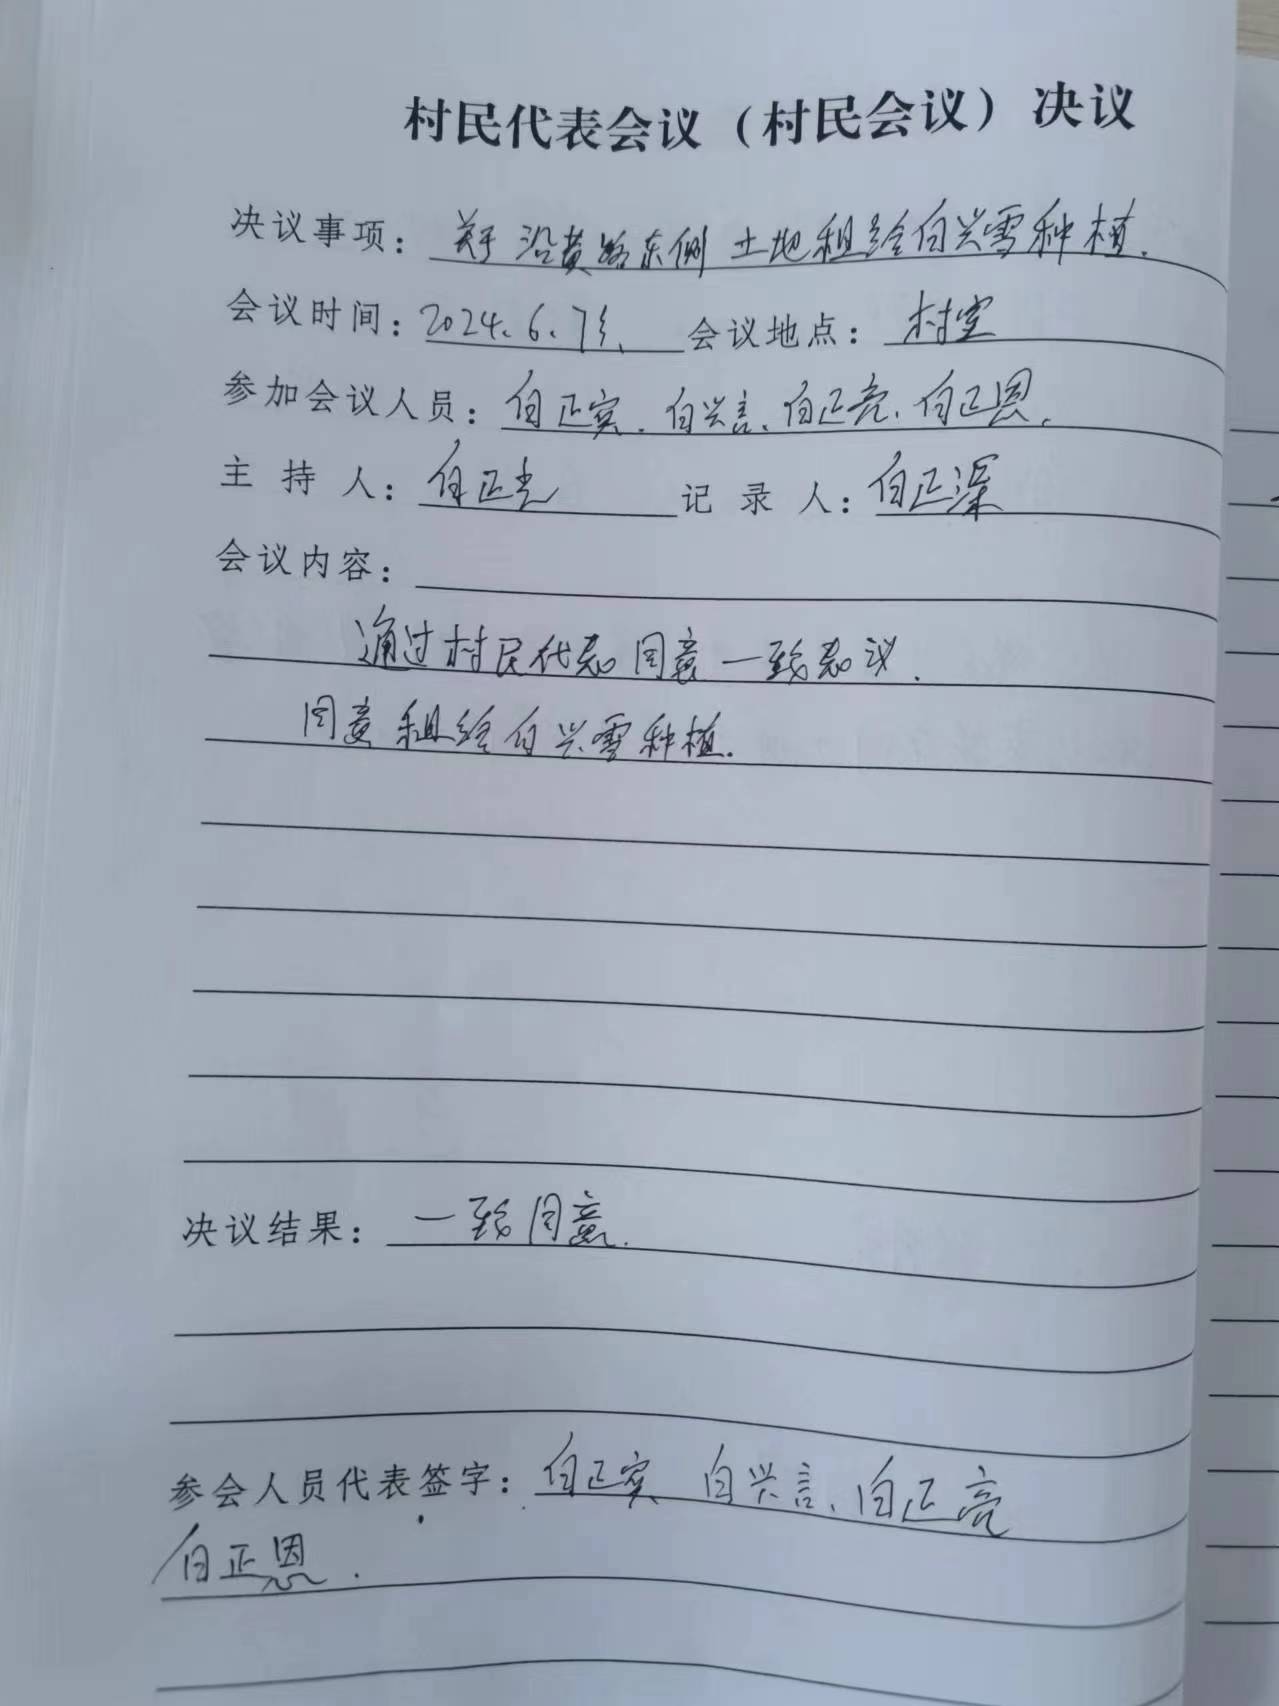 村民代表会议（村民会议）决议
决议事项：关于沿黄路东侧土地租给白兴雪种植.
会议时间：2024.6.7号、 会议地点：村室
参加会议人员：白正宾.白兴言、白正亮、白正恩.
主持人：白正光 记录人：白正深
会议内容：
通过村民代表同意一致表议.
同意租给白兴雪种植.
决议结果：一致同意.
参会人员代表签字：白正宾 白兴言、白正亮
白正恩.